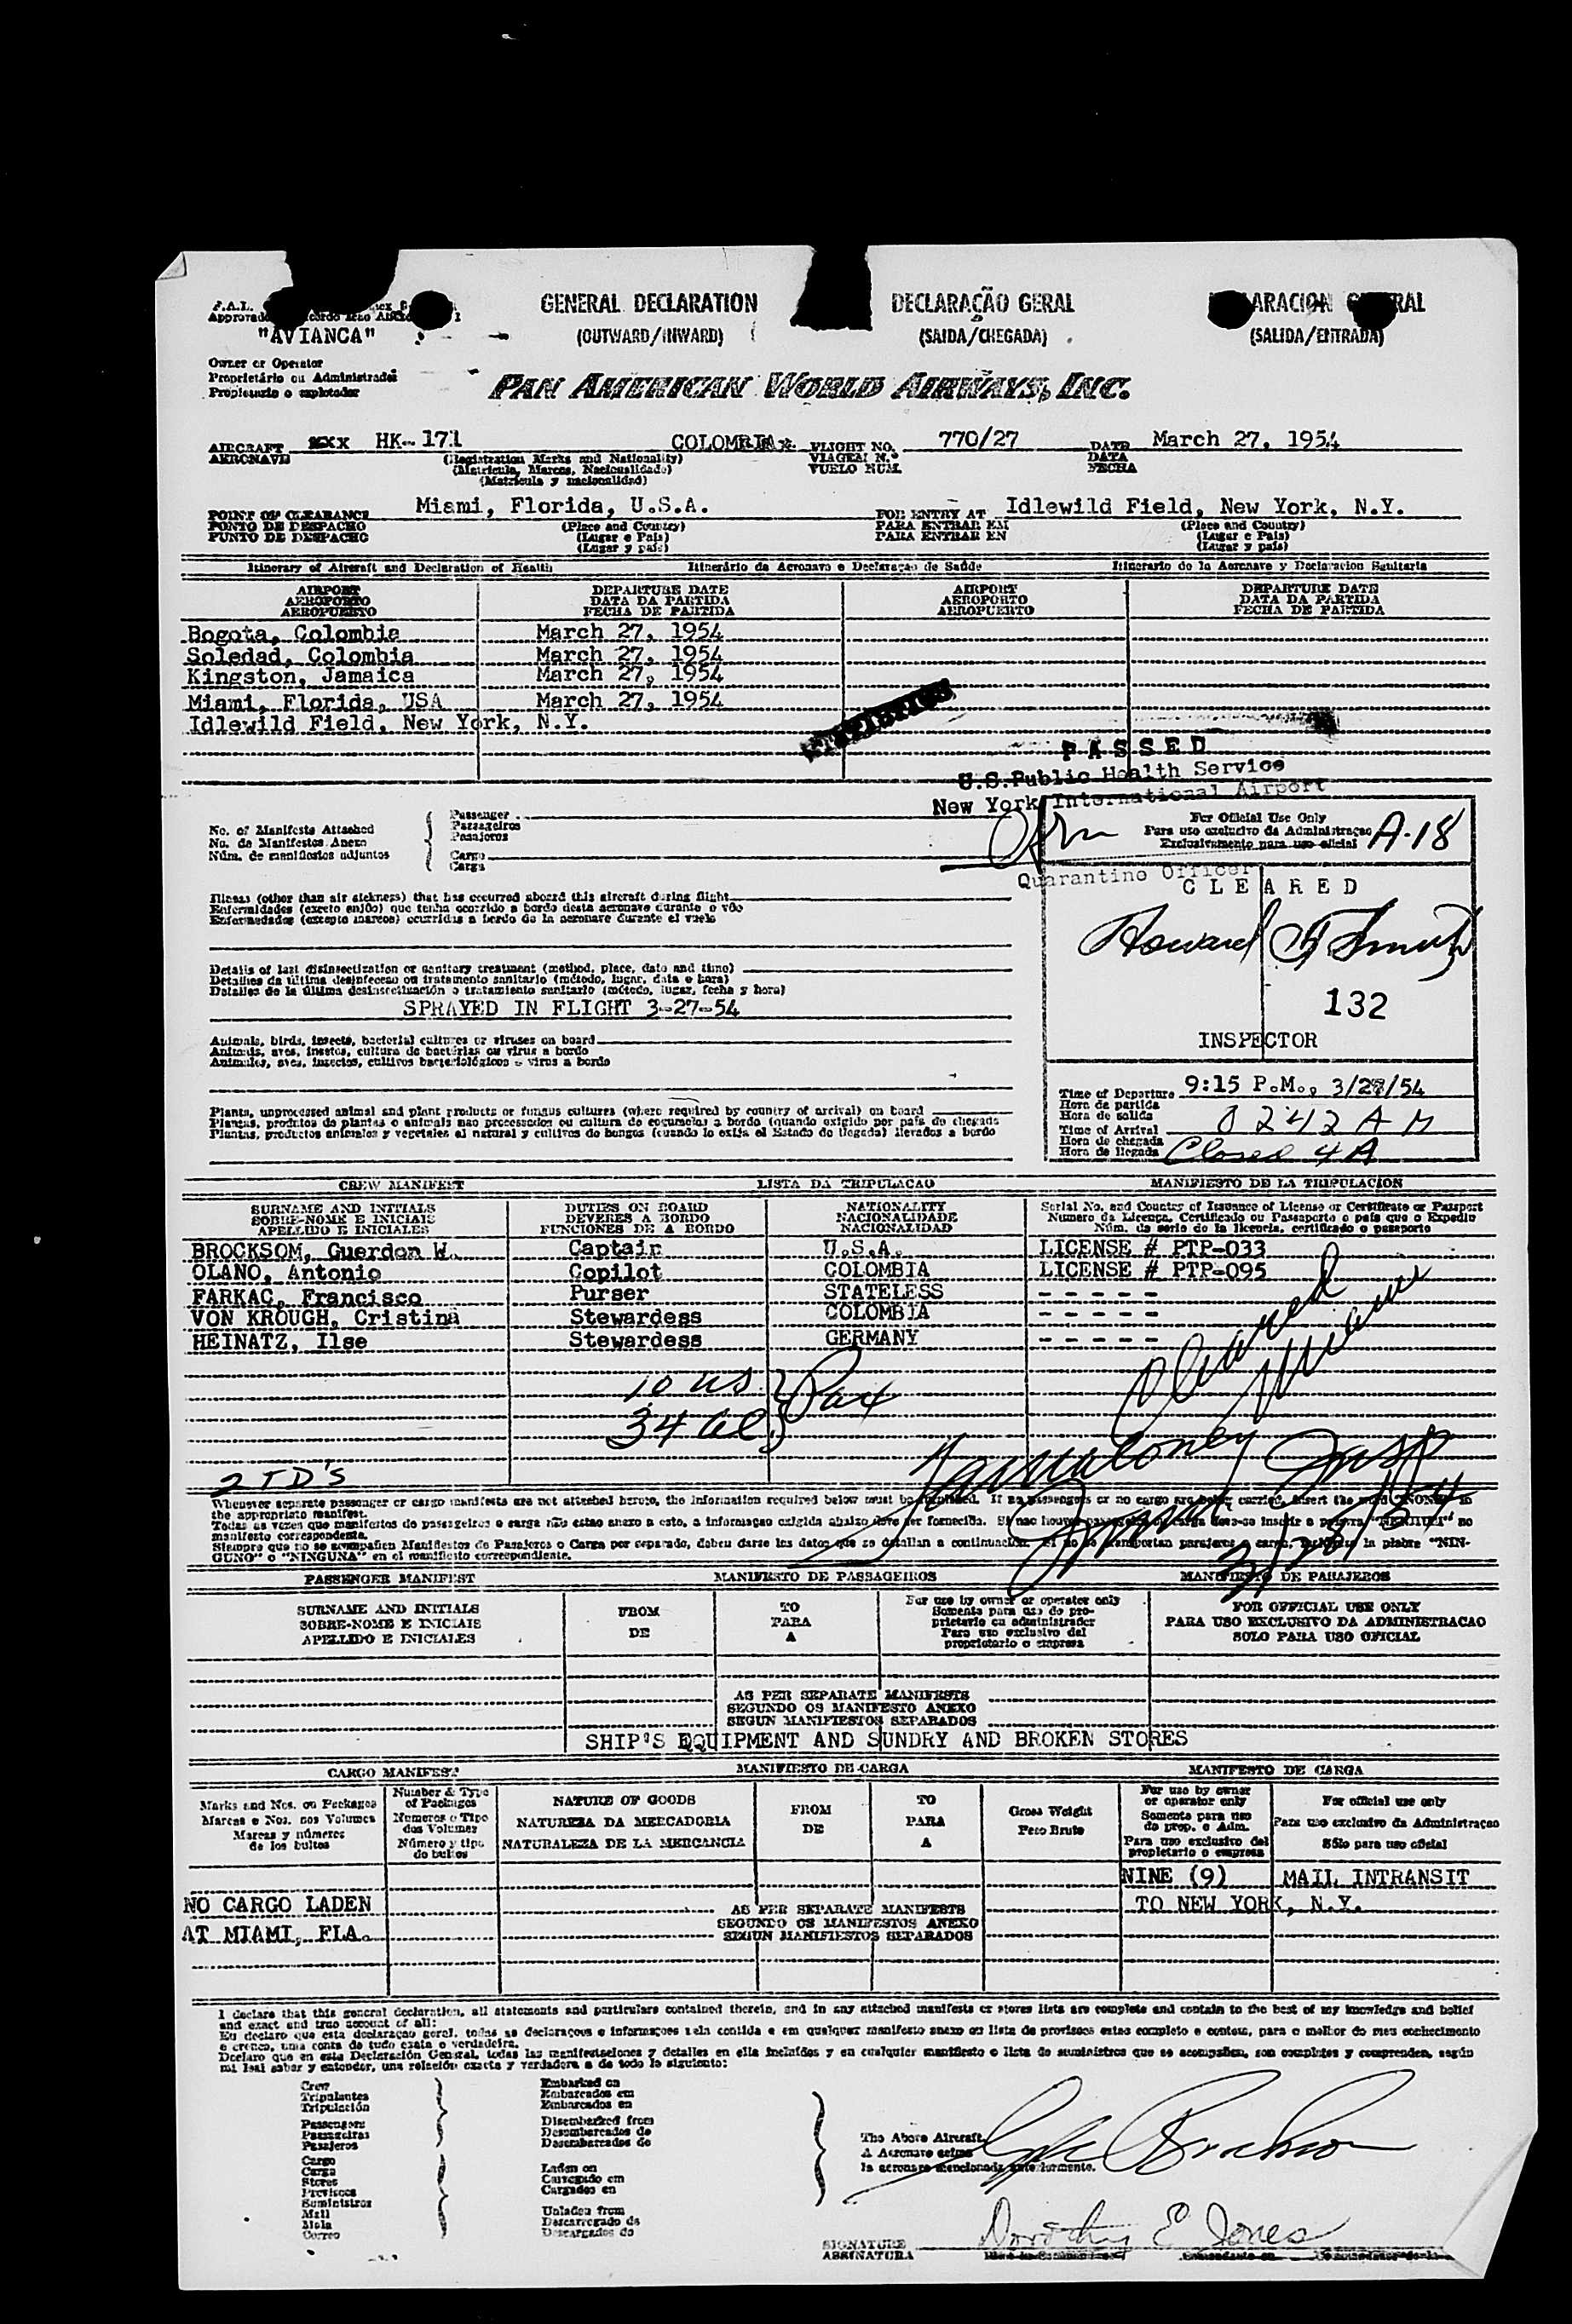 "AVIANCA"
GENERAL DECLARATION
(OUTWARD/INWARD)
DECLARAÇÃO GERAL
(SAIDA/CHEGADA)
(SALIDA/ENTRADA)
Owner or Operator
Proprietário ou Administrador
Propietario o explotador
PAN AMERICAN WORLD AIRWAYS, INC.
AIRCRAFT xxx HK-171 COLOMBIA FLIGHT NO. 770/27 DATE March 27, 1954
AERONAVE (Registration Marks and Nationality) VIAGEM N.º DATA
(Matricula, Marcas, Nacionalidade) VUELO NUM. FECHA
(Matricula y nacionalidad)
POINT OF CLEARANCE Miami, Florida, U.S.A. FOR ENTRY AT Idlewild Field, New York, N.Y.
PONTO DE DESPACHO (Place and Country) PARA ENTRAR EM (Place and Country)
PUNTO DE DESPACHO (Lugar e Pais) PARA ENTRAR EN (Lugar e Pais)
(Lugar y país) (Lugar y país)
Itinerary of Aircraft and Declaration of Health Itinerário da Aeronave e Declaração de Saúde Itinerario de la Aeronave y Declaracion Sanitaria
AIRPORT DEPARTURE DATE AIRPORT DEPARTURE DATE
AEROPORTO DATA DA PARTIDA AEROPORTO DATA DA PARTIDA
AEROPUERTO FECHA DE PARTIDA AEROPUERTO FECHA DE PARTIDA
Bogota, Colombia March 27, 1954
Soledad, Colombia March 27, 1954
Kingston, Jamaica March 27, 1954
Miami, Florida, USA March 27, 1954
Idlewild Field, New York, N.Y.
PASSED
U.S. Public Health Service
New York International Airport
Quarantine Officer
No. of Manifests Attached
No. de Manifestos Anexo
Núm. de manifiestos adjuntos
Passenger
Passageiros
Pasajeros
Cargo
Carga
For Official Use Only
Para uso exclusivo da Administraçao
Exclusivamente para uso oficial
A-18
CLEARED
Howard F Smith
132
INSPECTOR
Illness (other than air sickness) that has occurred aboard this aircraft during flight
Enfermidades (exceto enjôo) que tenha ocorrido a bordo desta aeronave durante o vôo
Enfermedades (excepto mareos) ocurridas a bordo de la aeronave durante el vuelo
Details of last disinsectization or sanitary treatment (method, place, date and time)
Detalhes da ultima desinfeccao ou tratamento sanitario (método, lugar, data e hora)
Detalles de la última desinsectización o tratamiento sanitario (método, lugar, fecha y hora)
SPRAYED IN FLIGHT 3-27-54
Animals, birds, insects, bacterial cultures or viruses on board
Animais, aves, insetos, cultura de bactérias ou virus a bordo
Animales, aves, insectos, cultivos bacteriológicos o virus a bordo
Plants, unprocessed animal and plant products or fungus cultures (where required by country of arrival) on board
Plantas, produtos de plantas e animais nao processados ou cultura de cogumelos a bordo (quando exigido por pais de chegada
Plantas, productos animales y vegetales al natural y cultivos de hongos (cuando lo exija el Estado de llegada) llevados a bordo
Time of Departure 9:15 P.M., 3/27/54
Hora da partida
Hora de salida
Time of Arrival 0242 AM
Hora da chegada
Hora de llegada Closed 4 A
CREW MANIFEST LISTA DA TRIPULACAO MANIFIESTO DE LA TRIPULACION
SURNAME AND INITIALS DUTIES ON BOARD NATIONALITY Serial No. and Country of Issuance of License or Certificate or Passport
SOBRE-NOME E INICIAIS DEVERES A BORDO NACIONALIDADE Numero da Licença, Certificado ou Passaporto o país que o Expediu
APELLIDO E INICIALES FUNCIONES DE A BORDO NACIONALIDAD Núm. de serie de la licencia, certificado o pasaporte
BROCKSOM, Guerdon W. Captain U.S.A. LICENSE # PTP-033
OLANO, Antonio Copilot COLOMBIA LICENSE # PTP-095
FARKAC, Francisco Purser STATELESS - - - - -
VON KROUGH, Cristina Stewardess COLOMBIA - - - - -
HEINATZ, Ilse Stewardess GERMANY - - - - -
10 US
34 al
Pax
2 TD'S
3/28/54
Whenever separate passenger or cargo manifests are not attached hereto, the information required below must be supplied. If no passengers or no cargo are being carried, insert the word "NONE" in
the appropriate manifest.
manifesto correspondente.
GUNO" o "NINGUNA" en el manifiesto correspondiente.
PASSENGER MANIFEST MANIFESTO DE PASSAGEIROS MANIFIESTO DE PASAJEROS
SURNAME AND INITIALS FROM TO For use by owner or operator only FOR OFFICIAL USE ONLY
SOBRE-NOME E INICIAIS DE PARA Somente para uso do proprietario ou administrador PARA USO EXCLUSIVO DA ADMINISTRACAO
APELLIDO E INICIALES A Para uso exclusivo del propietario o empresa SOLO PARA USO OFICIAL
AS PER SEPARATE MANIFESTS
SEGUNDO OS MANIFESTO ANEXO
SEGUN MANIFIESTOS SEPARADOS
SHIP'S EQUIPMENT AND SUNDRY AND BROKEN STORES
CARGO MANIFEST MANIFIESTO DE CARGA MANIFESTO DE CARGA
Marks and Nos. on Packages Number & Type of Packages NATURE OF GOODS FROM TO Gross Weight For use by owner or operator only For official use only
Marcas e Nos. nos Volumes Numeros e Tipo dos Volumes NATUREZA DA MERCADORIA DE PARA Peso Bruto Somente para uso do prop. o Adm. Para uso exclusivo da Administraçao
Marcas y números de los bultos Número y tipo de bultos NATURALEZA DE LA MERCANCIA A Para uso exclusivo del propietario o empresa Sólo para uso oficial
NINE (9) MAIL INTRANSIT
NO CARGO LADEN AS PER SEPARATE MANIFESTS TO NEW YORK, N.Y.
SEGUNDO OS MANIFESTOS ANEXO
AT MIAMI, FLA. SEGUN MANIFIESTOS SEPARADOS
I declare that this general declaration, all statements and particulars contained therein, and in any attached manifests or stores lists are complete and contain to the best of my knowledge and belief
and exact and true account of all:
Eu declaro que esta declaraçao geral, todas as declaraçoes e informaçoes nela contida e em qualquer manifesto anexo ou lista de provisoes estao completo e contem, para o melhor do meu conhecimento
e crenca, uma conta de tudo exata e verdadeira.
Declaro que en esta Declaración General, todas las manifestaciones y detalles en ella incluídos y en cualquier manifiesto o lista de suministros que se acompañen, son completos y comprenden, según
mi leal saber y entender, una relación exacta y verdadera a de todo lo siguiente:
Crew
Tripulantes
Tripulación
Passengers
Passageiros
Pasajeros
Cargo
Carga
Stores
Provisoes
Suministros
Mail
Mala
Correo
Embarked on
Embarcados em
Embarcados en
Disembarked from
Desembarcados de
Desembarcados de
Laden on
Carregado em
Cargados en
Unladen from
Descarregado de
Descargados de
The Above Aircraft
A Aeronave acima
la aeronave mencionada anteriormente.
SIGNATURE Dorothy E Jones
ASSINATURA